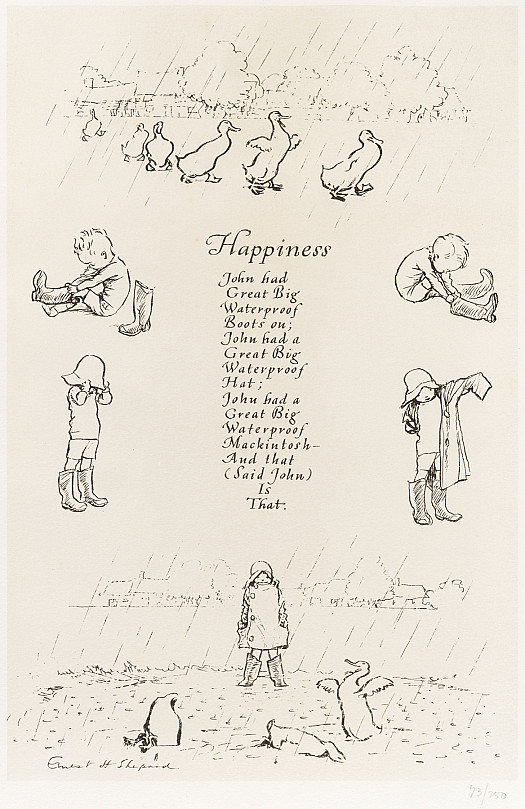 Happiness
John had
Great Big
Waterproof
Boots on;
John had a
Great Big
Waterproof
Hat;
John had a
Great Big
Waterproof
Mackintosh—
And that
(Said John)
Is
That.
Ernest H Shepard
93/250